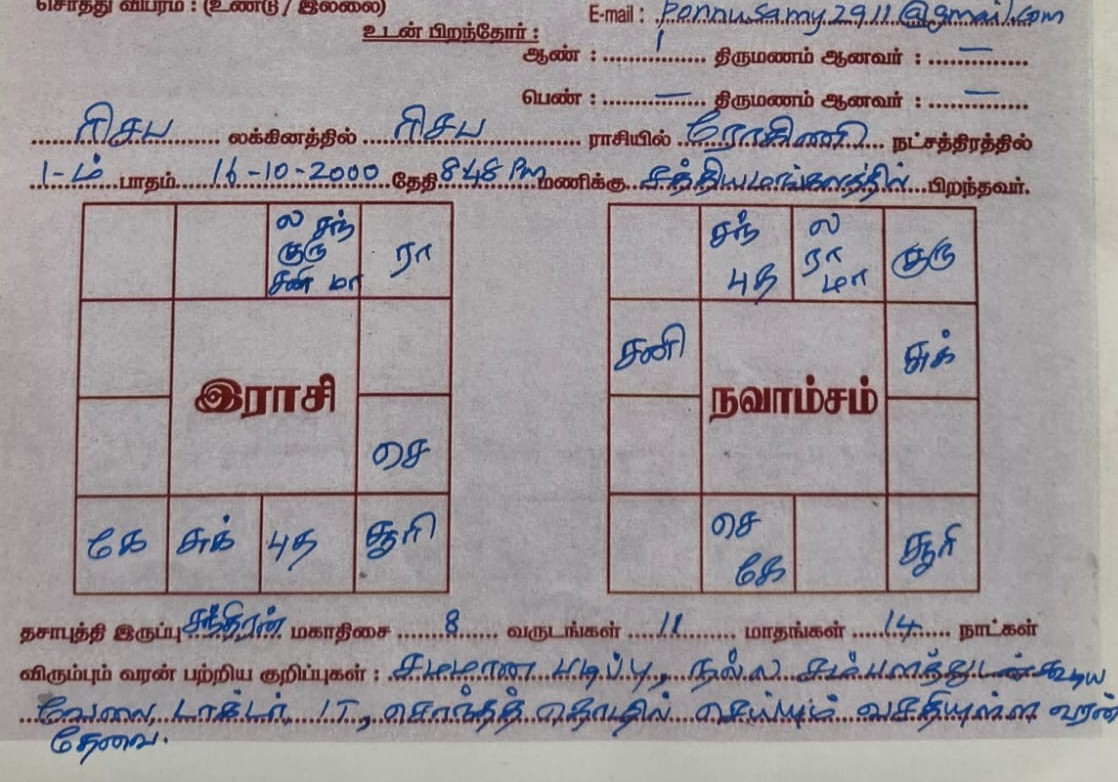 சொத்து விபரம் : (உண்டு / இல்லை)
E-mail : ponnusamy2911@gmail.com
உடன் பிறந்தோர் :
ஆண் : 1 திருமணம் ஆனவர் : —
பெண் : — திருமணம் ஆனவர் : —
ரிசப லக்கினத்தில் ரிசப ராசியில் ரோகிணி நட்சத்திரத்தில்
1-ம் பாதம் 16-10-2000 தேதி 8 48 Pm மணிக்கு சத்தியமங்கலத்தில் பிறந்தவர்.
ல சந்
குரு
சனி மா
ரா
இராசி
செ
கே சுக் புத சூரி
சந்
புத
ல
ரா
மா
குரு
சனி
சுக்
நவாம்சம்
செ
கே
சூரி
தசாபுத்தி இருப்பு சந்திரன் மகாதிசை 8 வருடங்கள் 11 மாதங்கள் 14 நாட்கள்
விரும்பும் வரன் பற்றிய குறிப்புகள் : சமமான படிப்பு, நல்ல சம்பளத்துடன் கூடிய
வேலை, டாக்டர், IT, சொந்தத் தொழில் செய்யும் வசதியுள்ள வரன்
தேவை.